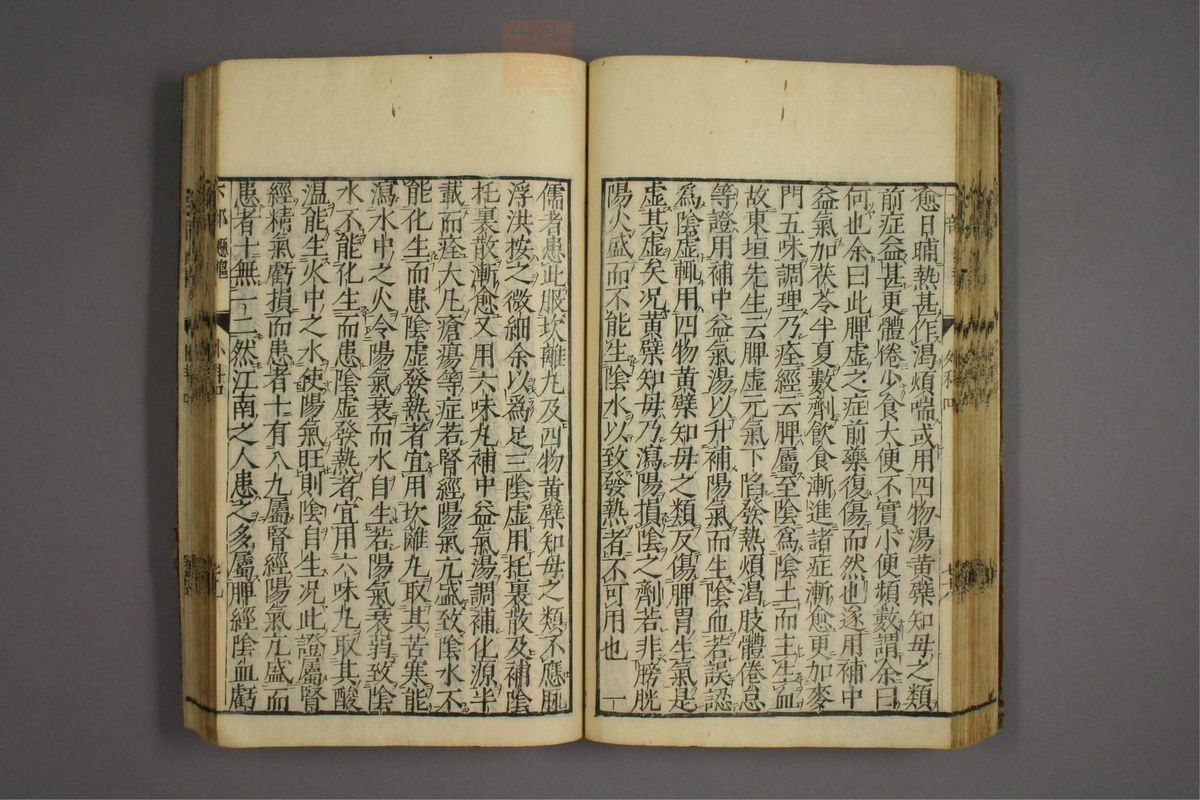 愈日晡熱甚作渴煩喘或用四物湯黃蘗知母之類
前症益甚更體倦少食大便不實小便頻數謂余曰
何也余曰此脾虛之症前藥復傷而然也遂用補中
益氣加茯苓半夏數劑飲食漸進諸症漸愈更加麥
門五味調理乃痊經云脾屬至陰爲陰土而主生血
故東垣先生云脾虛元氣下陷發熱煩渴肢體倦怠
等證用補中益氣湯以升補陽氣而生陰血若誤認
爲陰虛輒用四物黃蘗知母之類反傷脾胃生氣是
虛其虛矣况黃蘗知母乃瀉陽損陰之劑若非膀胱
陽火盛而不能生陰水以致發熱者不可用也 一
儒者患此服坎離丸及四物黃蘗知母之類不應脈
浮洪按之微細余以爲足三陰虛用托裏散及補陰
托裏散漸愈又用六味丸補中益氣湯調補化源半
載而痊大凡瘡瘍等症若腎經陽氣亢盛致陰水不
能化生而患陰虛發熱者宜用坎離丸取其苦寒能
瀉水中之火令陽氣衰而水自生若陽氣衰弱致陰
水不能化生而患陰虛發熱者宜用六味丸取其酸
温能生火中之水使陽氣旺則陰自生况此證屬腎
經精氣虧損而患者十有八九屬腎經陽氣亢盛而
患者十無一二然江南之人患之多屬脾經陰血虧